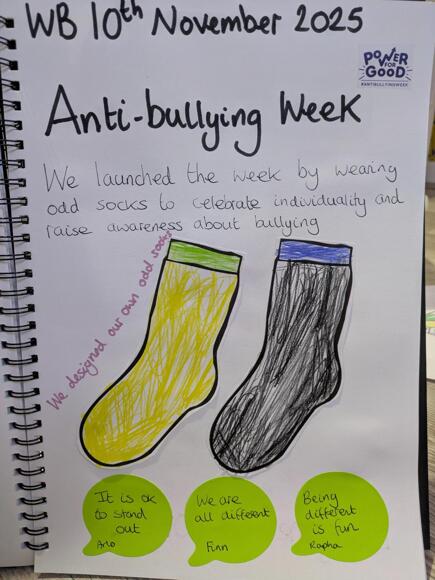 WB 10th November 2025
POWER
FOR
GOOD
#ANTIBULLYINGWEEK
Anti-bullying Week
We launched the week by wearing
odd socks to celebrate individuality and
raise awareness about bullying
We designed our own odd socks
It is ok
to stand
out
Arlo
We are
all different
Finn
Being
different
is fun
Rapha